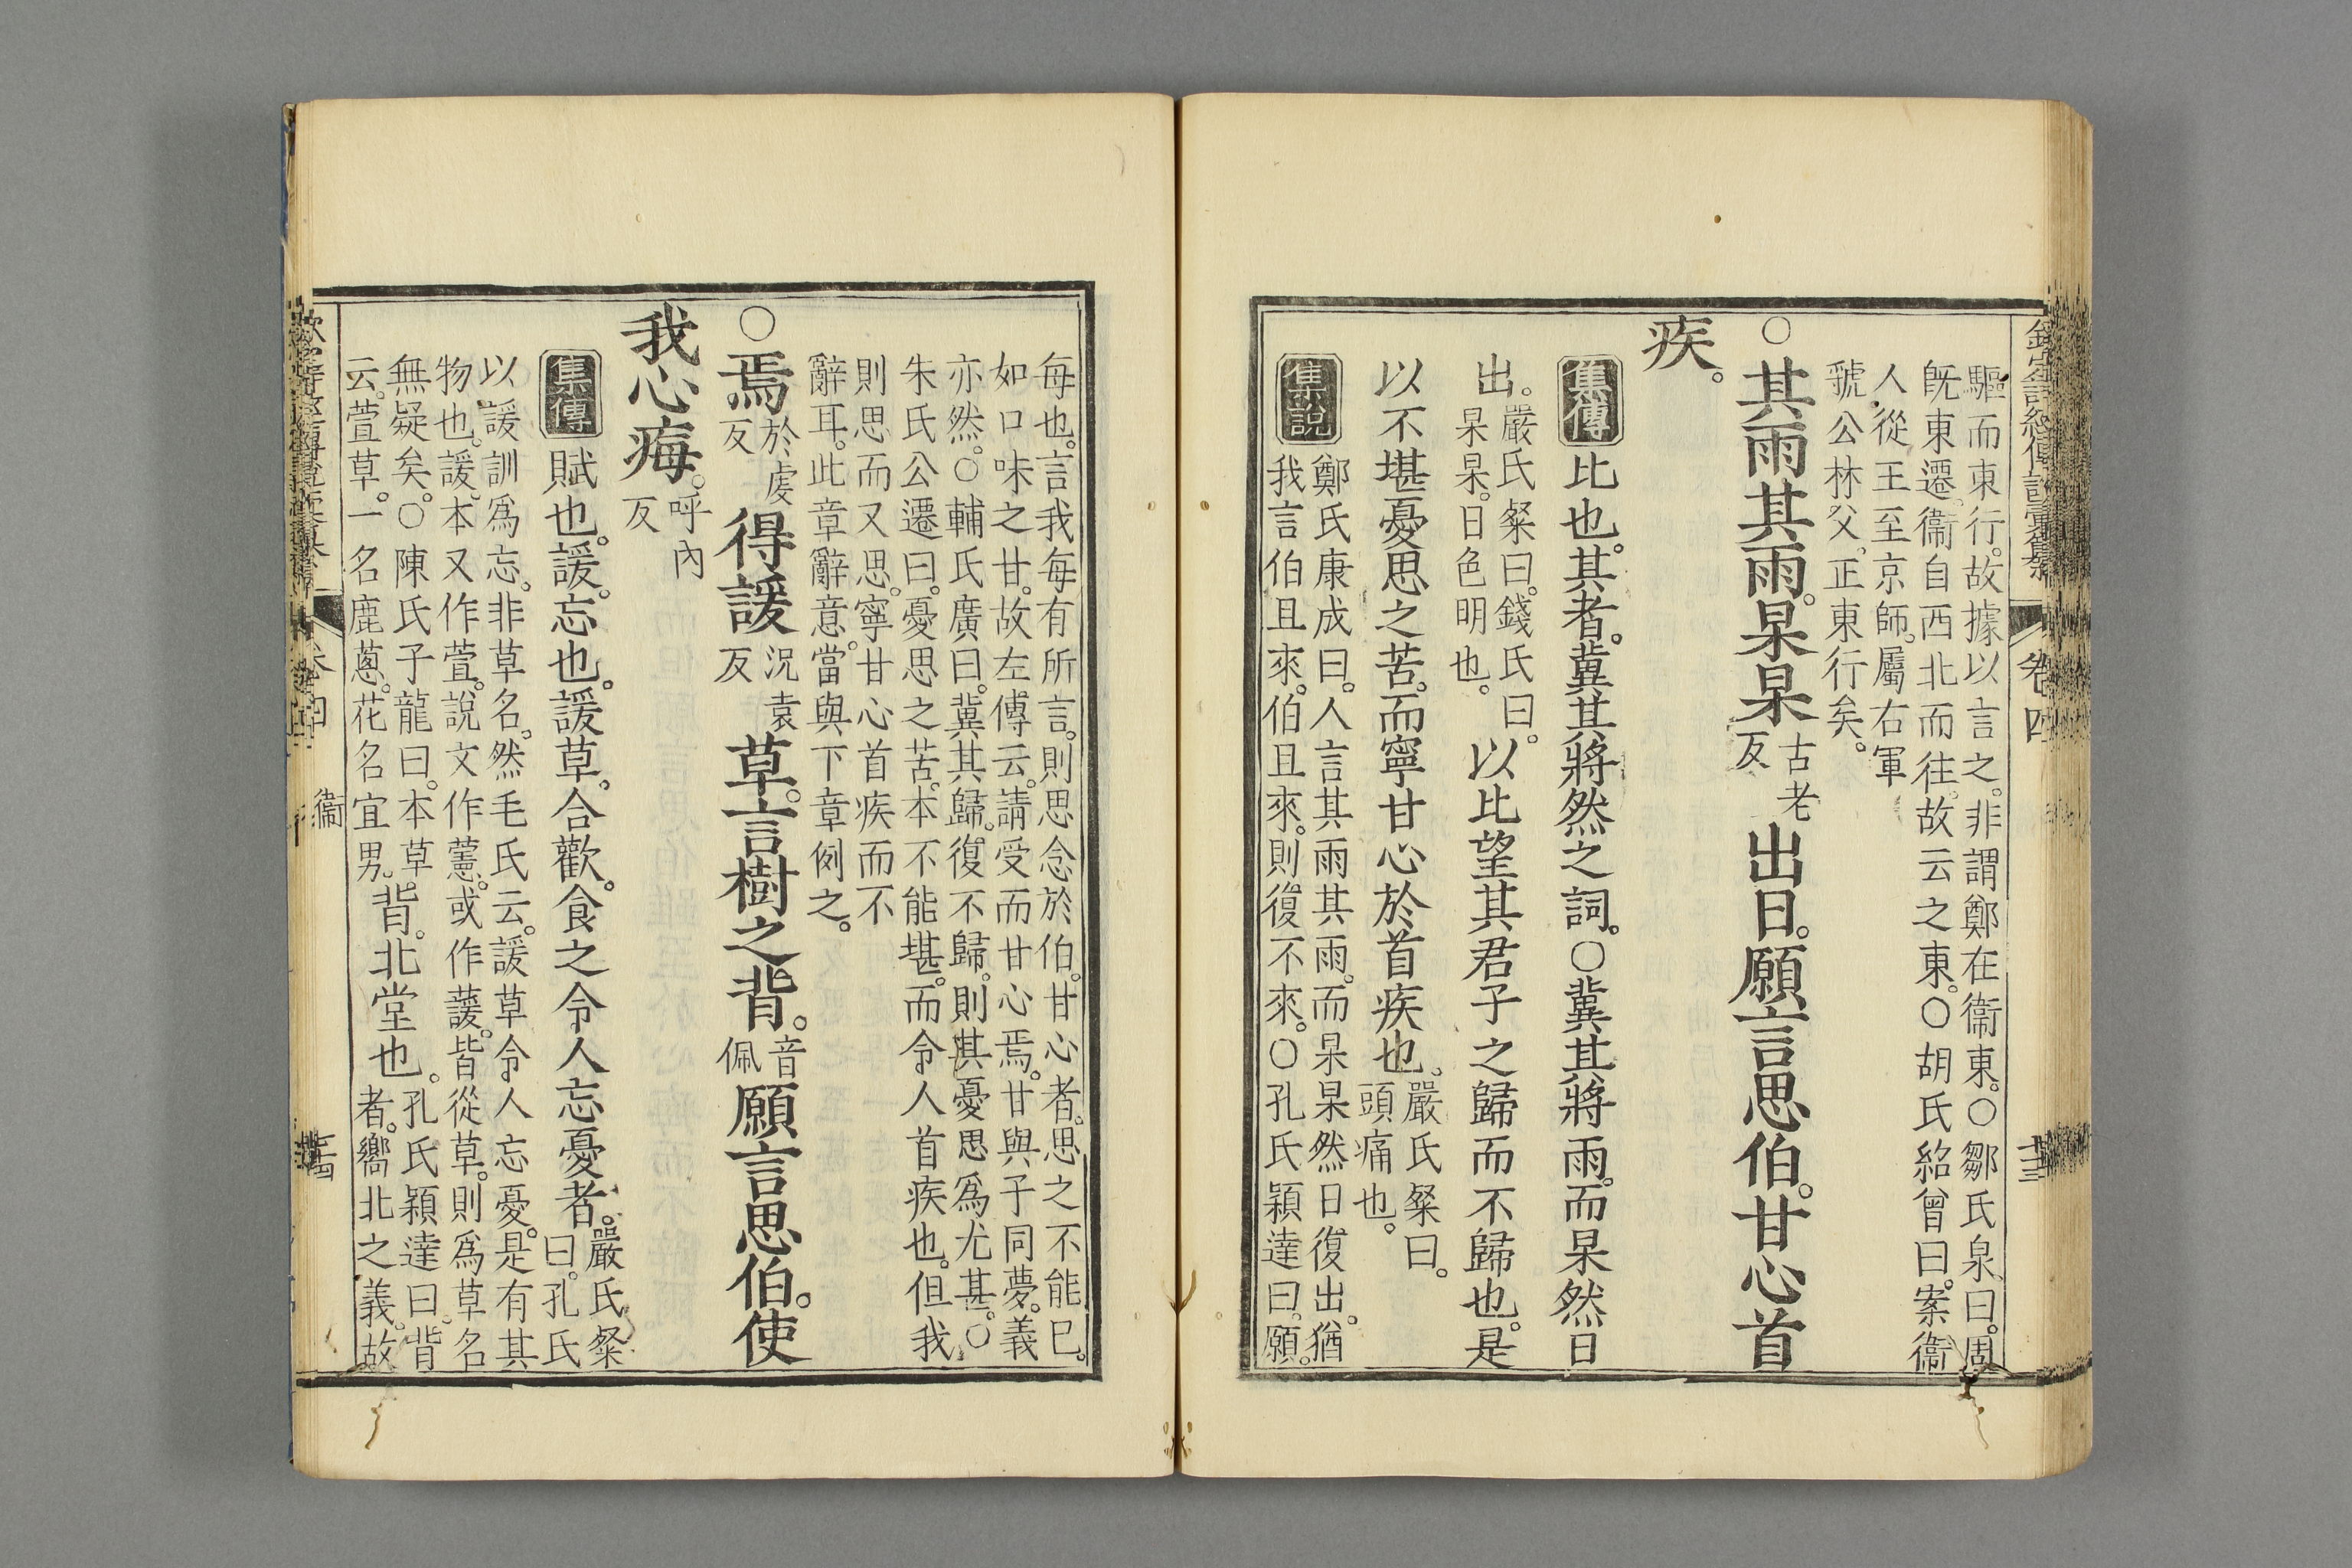 驅而東行。故據以言之。非謂鄭在衞東。○鄒氏泉曰。周
旣東遷。衞自西北而往。故云之東。○胡氏紹曾曰。案衞
人從王至京師。屬右軍
虢公林父。正東行矣。
○其雨其雨。杲杲古老反出日。願言思伯。甘心首
疾。
集傳比也。其者。冀其將然之詞。○冀其將雨。而杲然日
出。嚴氏粲曰。錢氏曰。杲杲。日色明也。以比望其君子之歸而不歸也。是
以不堪憂思之苦。而寧甘心於首疾也。嚴氏粲曰。頭痛也。
集說鄭氏康成曰。人言其雨其雨。而杲杲然日復出。猶
我言伯且來。伯且來。則復不來。○孔氏穎達曰。願。
欽定詩經傳說彙纂 卷四
每也。言我每有所言。則思念於伯。甘心者。思之不能已。
如口味之甘。故左傳云。請受而甘心焉。甘與子同夢。義
亦然。○輔氏廣曰。冀其歸。復不歸。則其憂思爲尤甚。○
朱氏公遷曰。憂思之苦。本不能堪。而令人首疾也。但我
則思而又思。寧甘心首疾而不
辭耳。此章辭意。當與下章例之。
○焉於虔反得諼況袁反草。言樹之背。音佩願言思伯。使
我心痗。呼內反
集傳賦也。諼。忘也。諼草。合歡。食之令人忘憂者。嚴氏粲曰。孔氏
以諼訓爲忘。非草名。然毛氏云。諼草令人忘憂。是有其
物也。諼。本又作萱。說文作藼。或作蕿。皆從草。則爲草名
無疑矣。○陳氏子龍曰。本草
云。萱草。一名鹿蔥。花名宜男。背。北堂也。孔氏穎達曰。背者。嚮北之義。故
衞